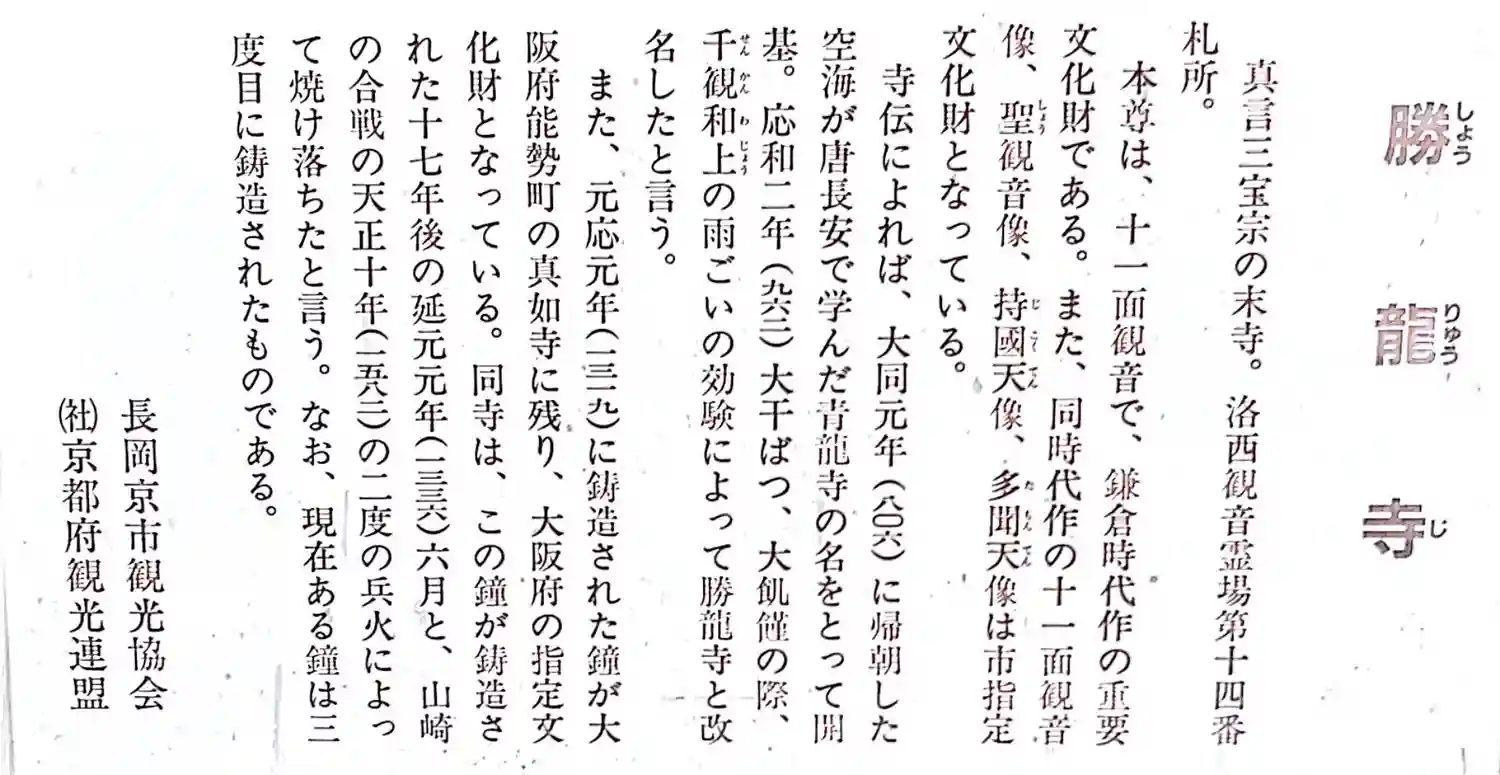 勝龍寺
しょうりゅうじ
真言三宝宗の末寺。洛西観音霊場第十四番
札所。
本尊は、十一面観音で、鎌倉時代作の重要
文化財である。また、同時代作の十一面観音
像、聖観音像、持國天像、多聞天像は市指定
文化財となっている。
寺伝によれば、大同元年(八〇六)に帰朝した
空海が唐長安で学んだ青龍寺の名をとって開
基。応和二年(九六二)大干ばつ、大飢饉の際、
千観和上の雨ごいの効験によって勝龍寺と改
名したと言う。
また、元応元年(一三一九)に鋳造された鐘が大
阪府能勢町の真如寺に残り、大阪府の指定文
化財となっている。同寺は、この鐘が鋳造さ
れた十七年後の延元元年(一三三六)六月と、山崎
の合戦の天正十年(一五八二)の二度の兵火によっ
て焼け落ちたと言う。なお、現在ある鐘は三
度目に鋳造されたものである。
長岡京市観光協会
(社)京都府観光連盟